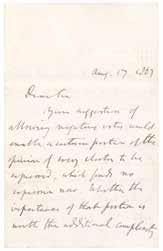 Aug. 17 1867
Dear Sir
Your suggestion of
allowing negative votes would
enable a certain portion of the
opinion of every elector to be
expressed, which finds no
expression now. Whether the
importance of that portion is
worth the additional complexity